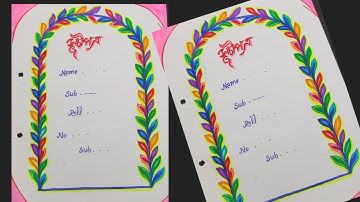 সূচীপত্র
Name . . .
Sub - . —
Roll . . .
No . . .
Sub . . .
সূচীপত্র
Name . . . .
Sub . . —
Roll . . .
No . . . .
Sub . . .